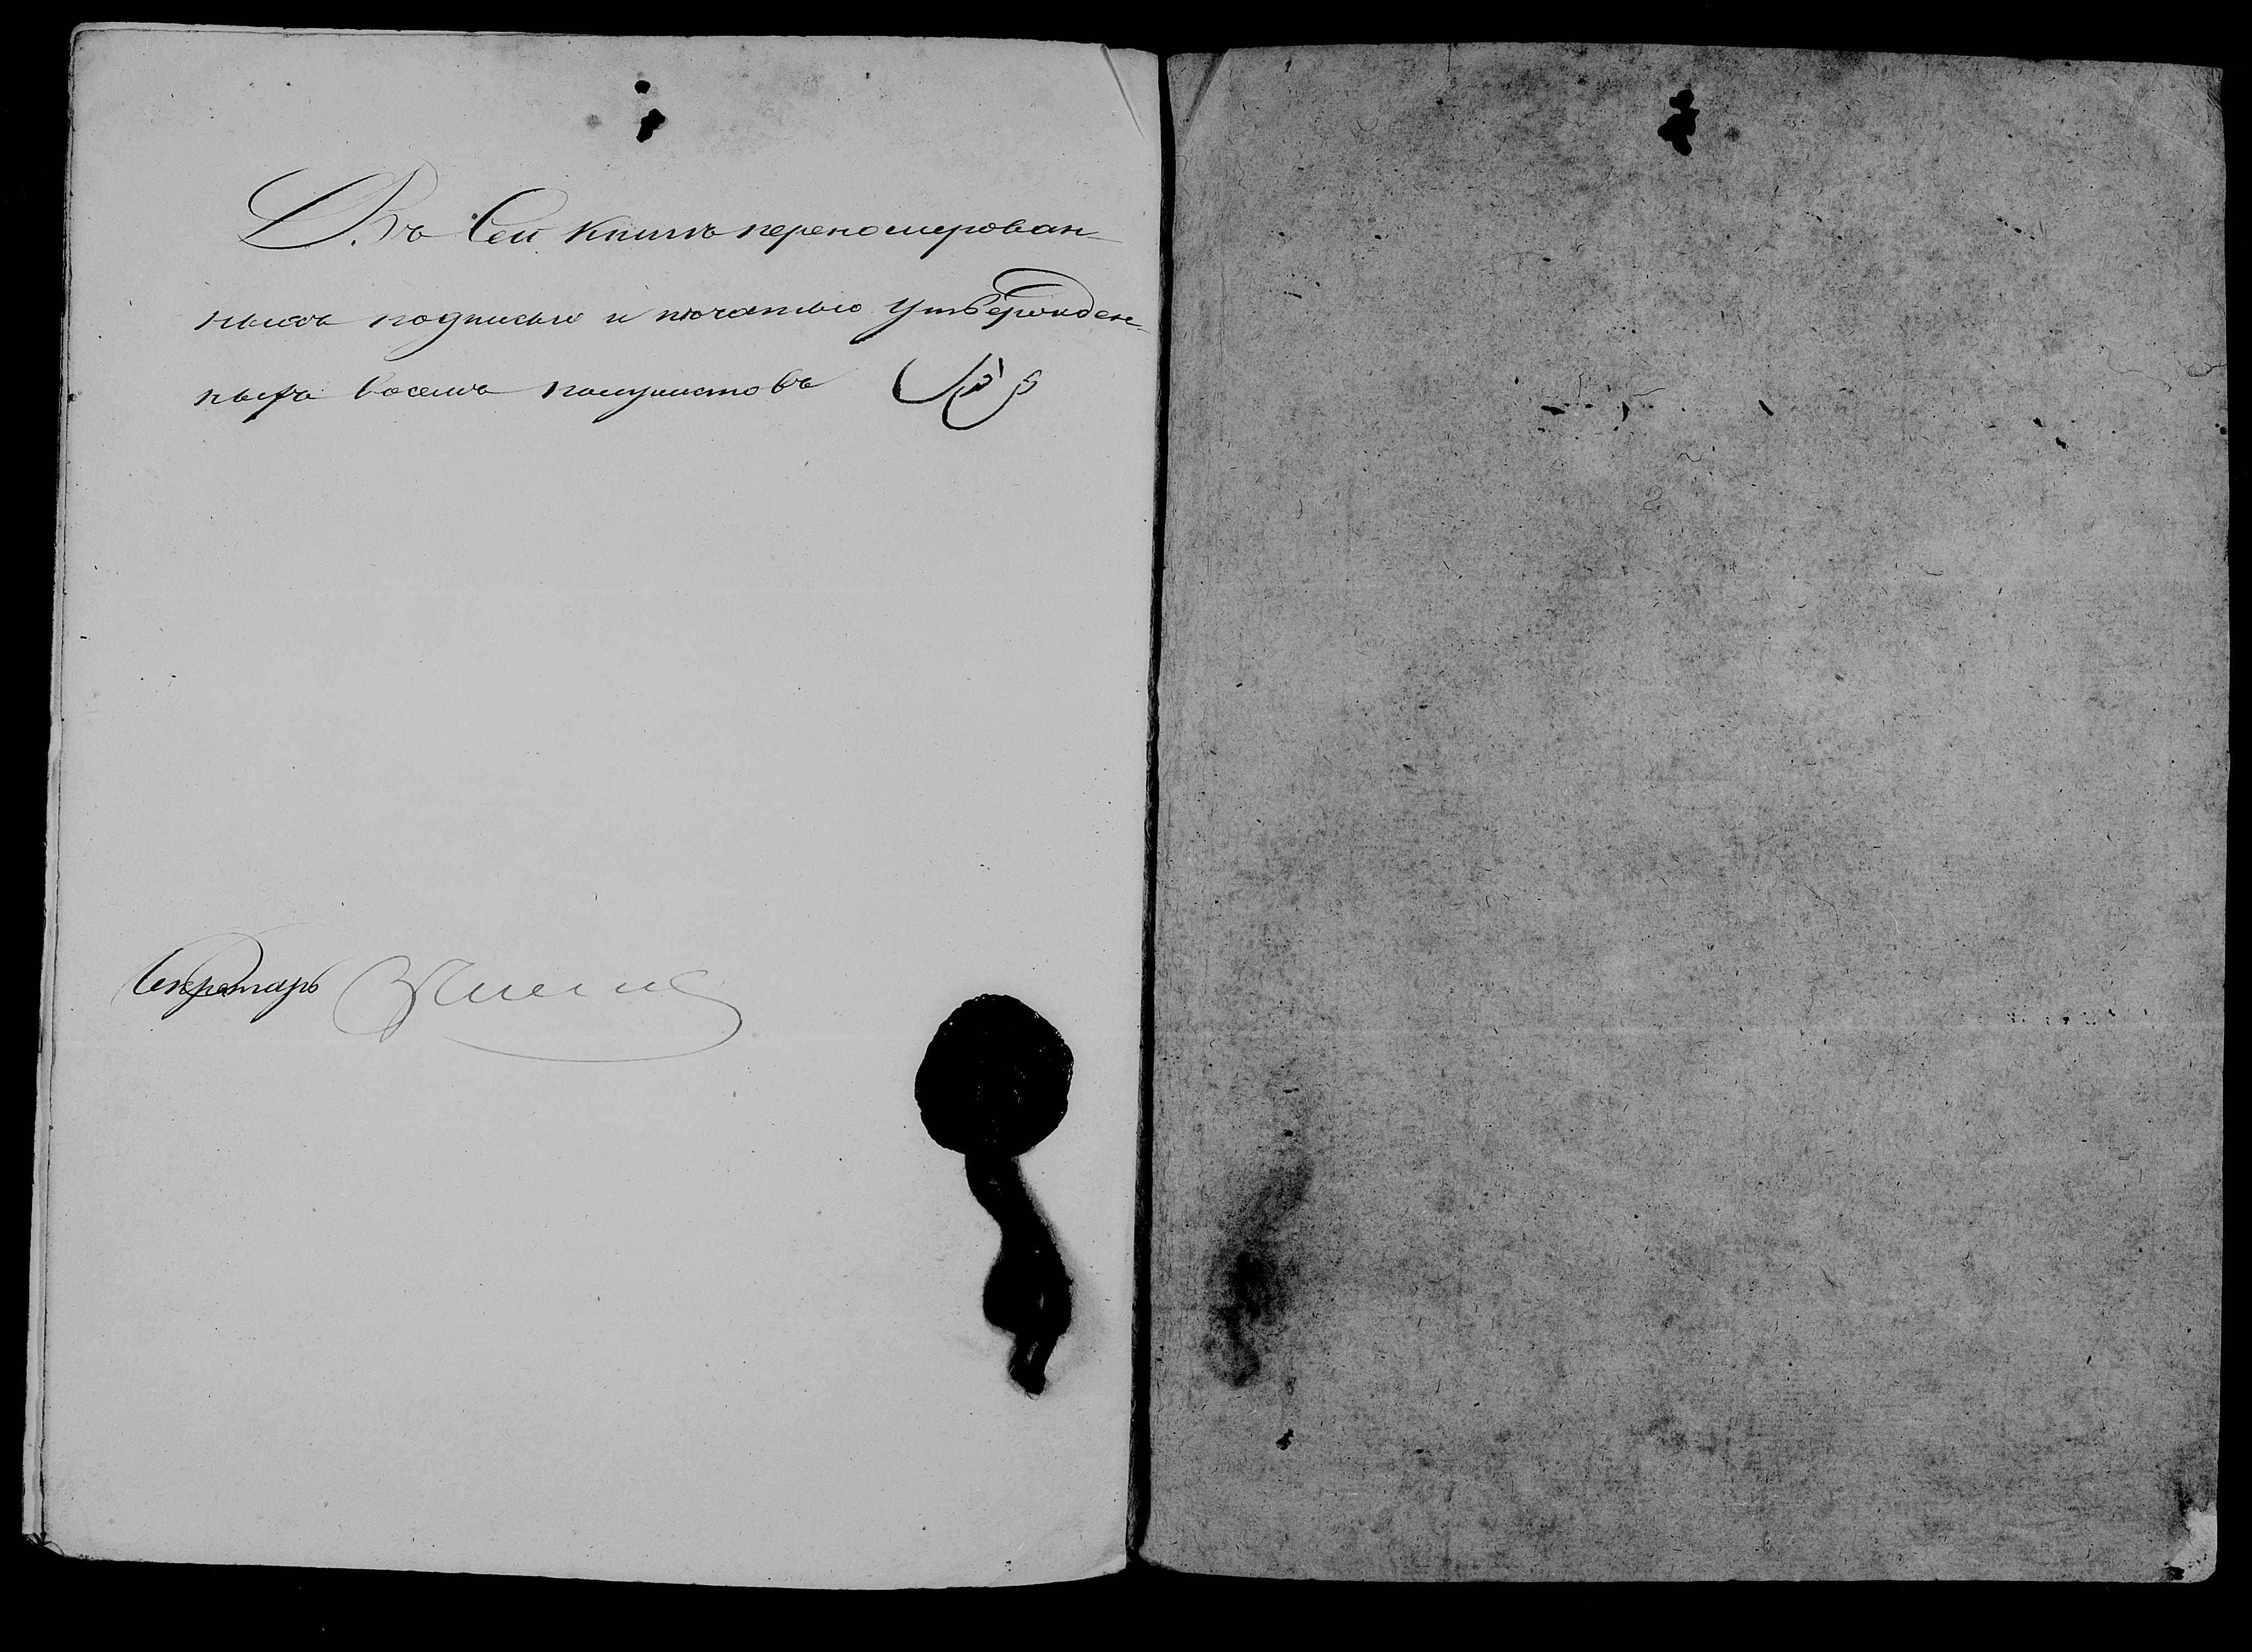 Въ Сей книгѣ переномерован-
ныхъ подписью и печатью утвержден-
ныхъ восемь полулистовъ
Секретарь